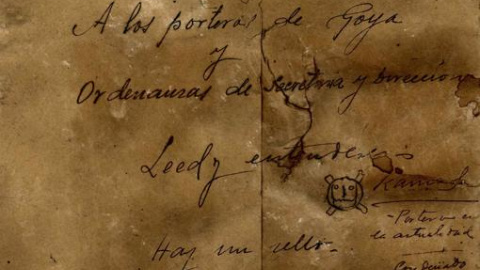 A los porteros de Goya
y
Ordenanzas de Secretaria y Dirección
Leed y entenderéis
Ramon
- Portero en
la actualidad
Hay un sello -
Condenado